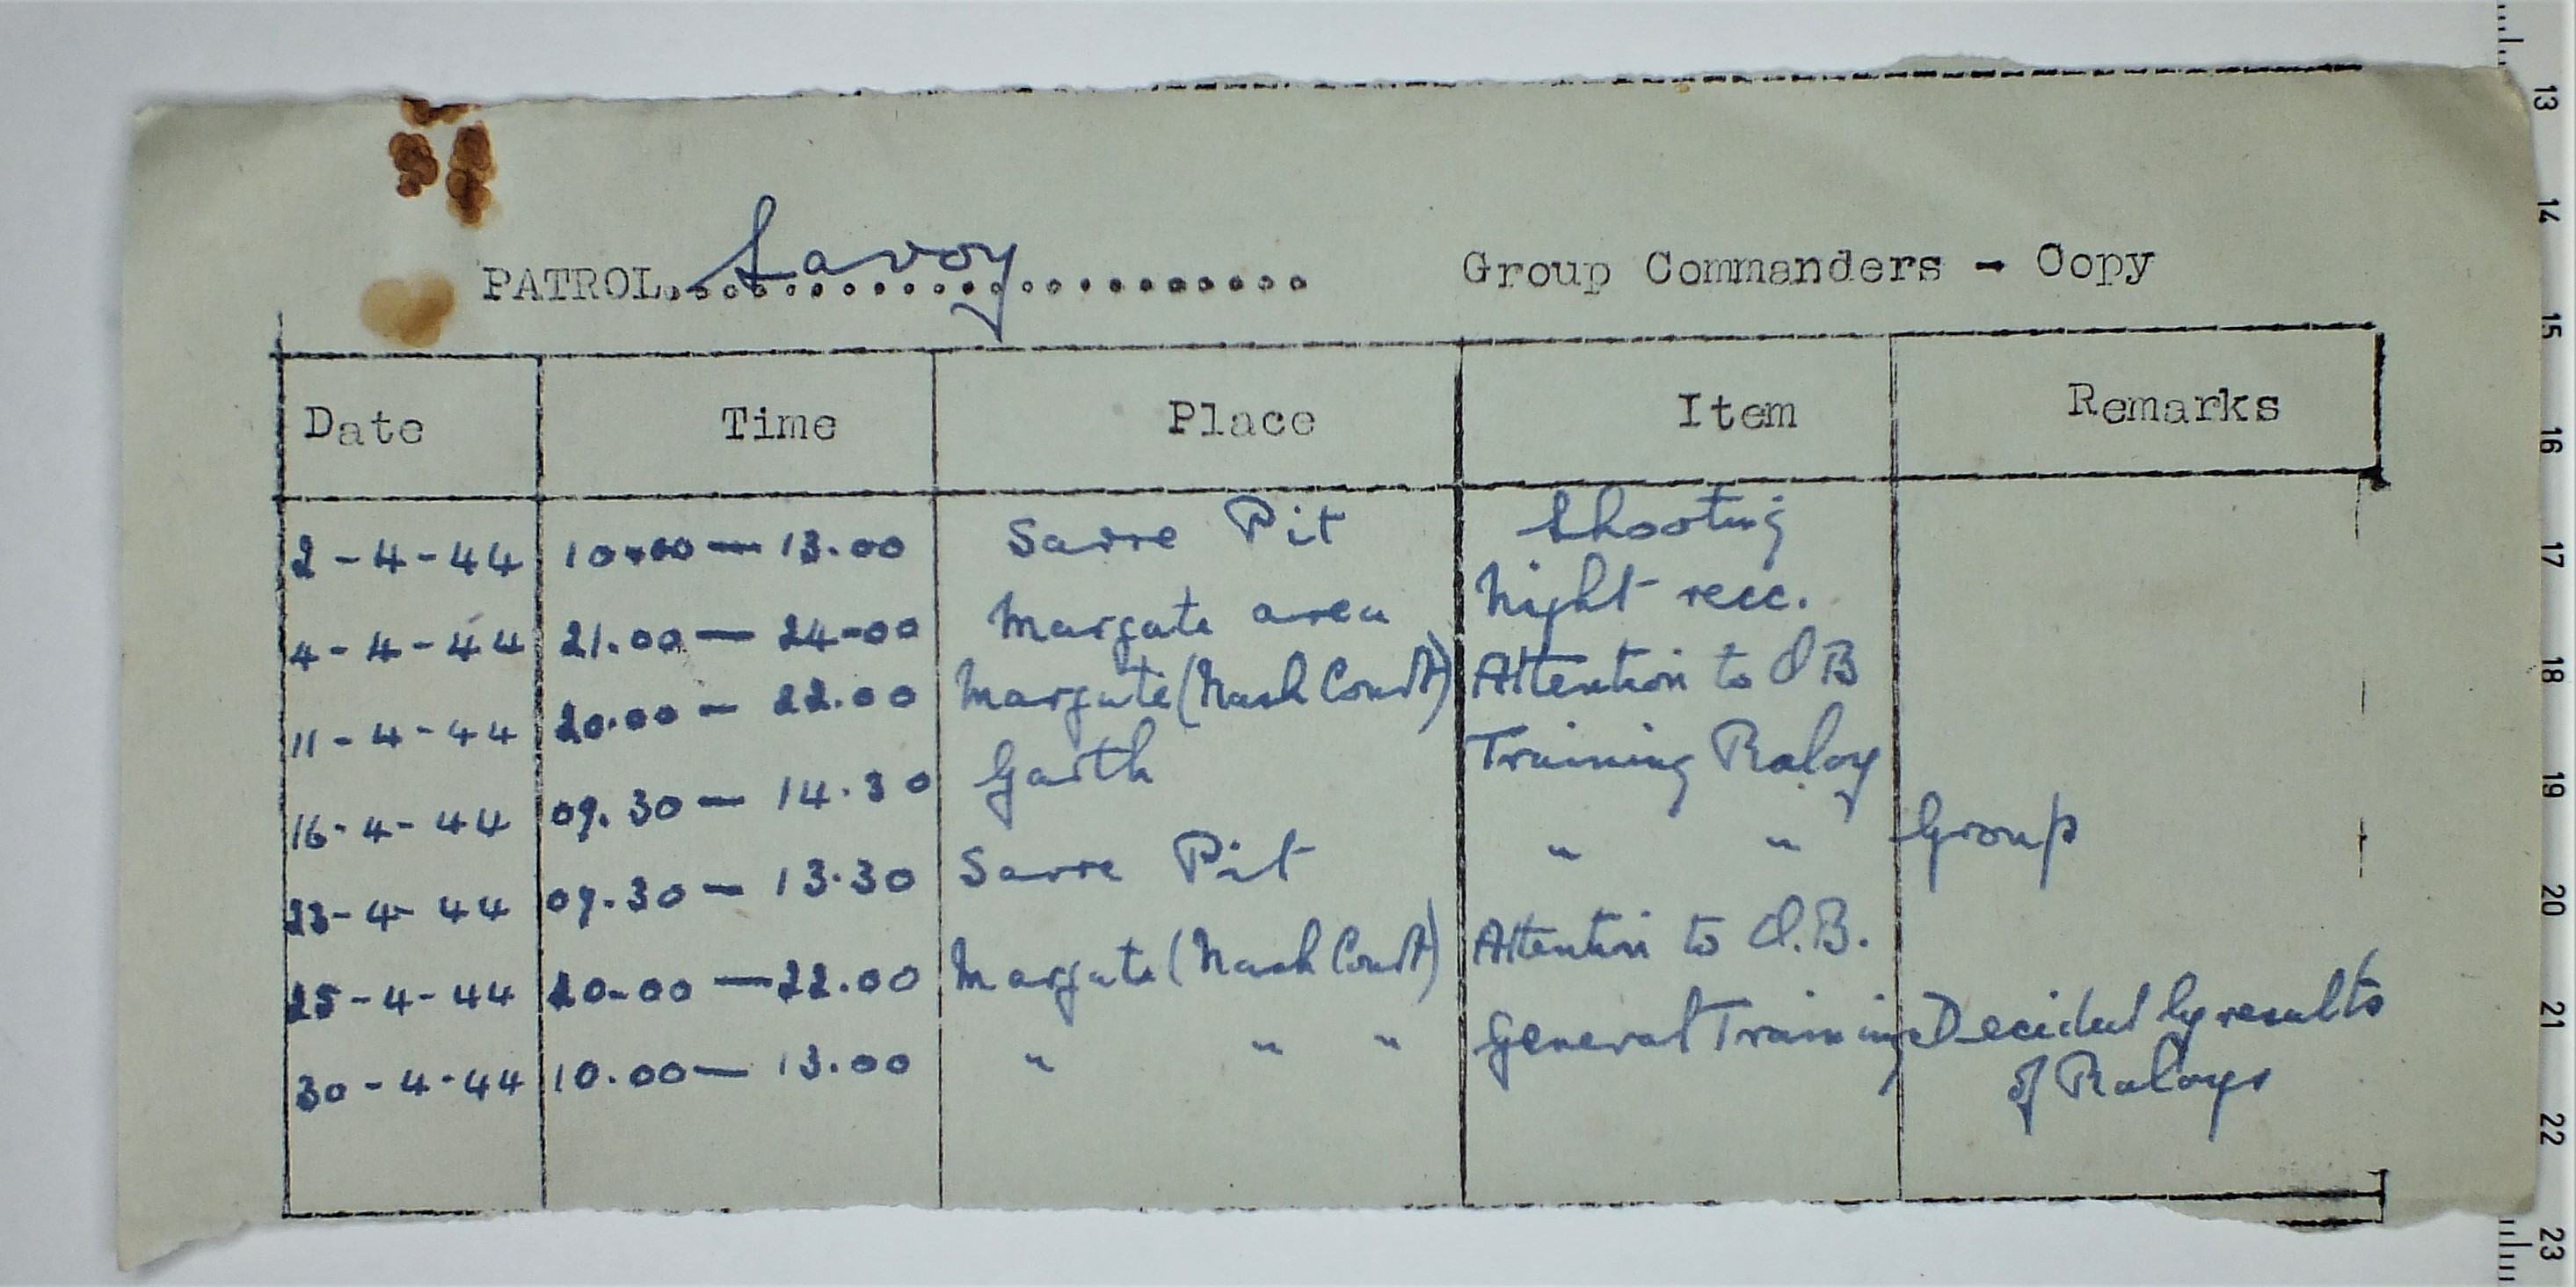 PATROL. Savoy .......... Group Commanders - Copy
Date Time Place Item Remarks
2-4-44 10.00 — 13.00 Sarre Pit Shooting
4-4-44 21.00 — 24-00 Margate area Night recc.
11-4-44 20.00 - 22.00 Margate (Nash Court) Attention to OB
16-4-44 09.30 — 14.30 Garth Training Raloy
23-4-44 09.30 — 13.30 Sarre Pit " " Group
25-4-44 20-00 — 22.00 Margate (Nash Court) Attention to O.B.
30-4-44 10.00 — 13.00 " " " General Training Decided by results
of Raloys
13
14
15
16
17
18
19
20
21
22
23